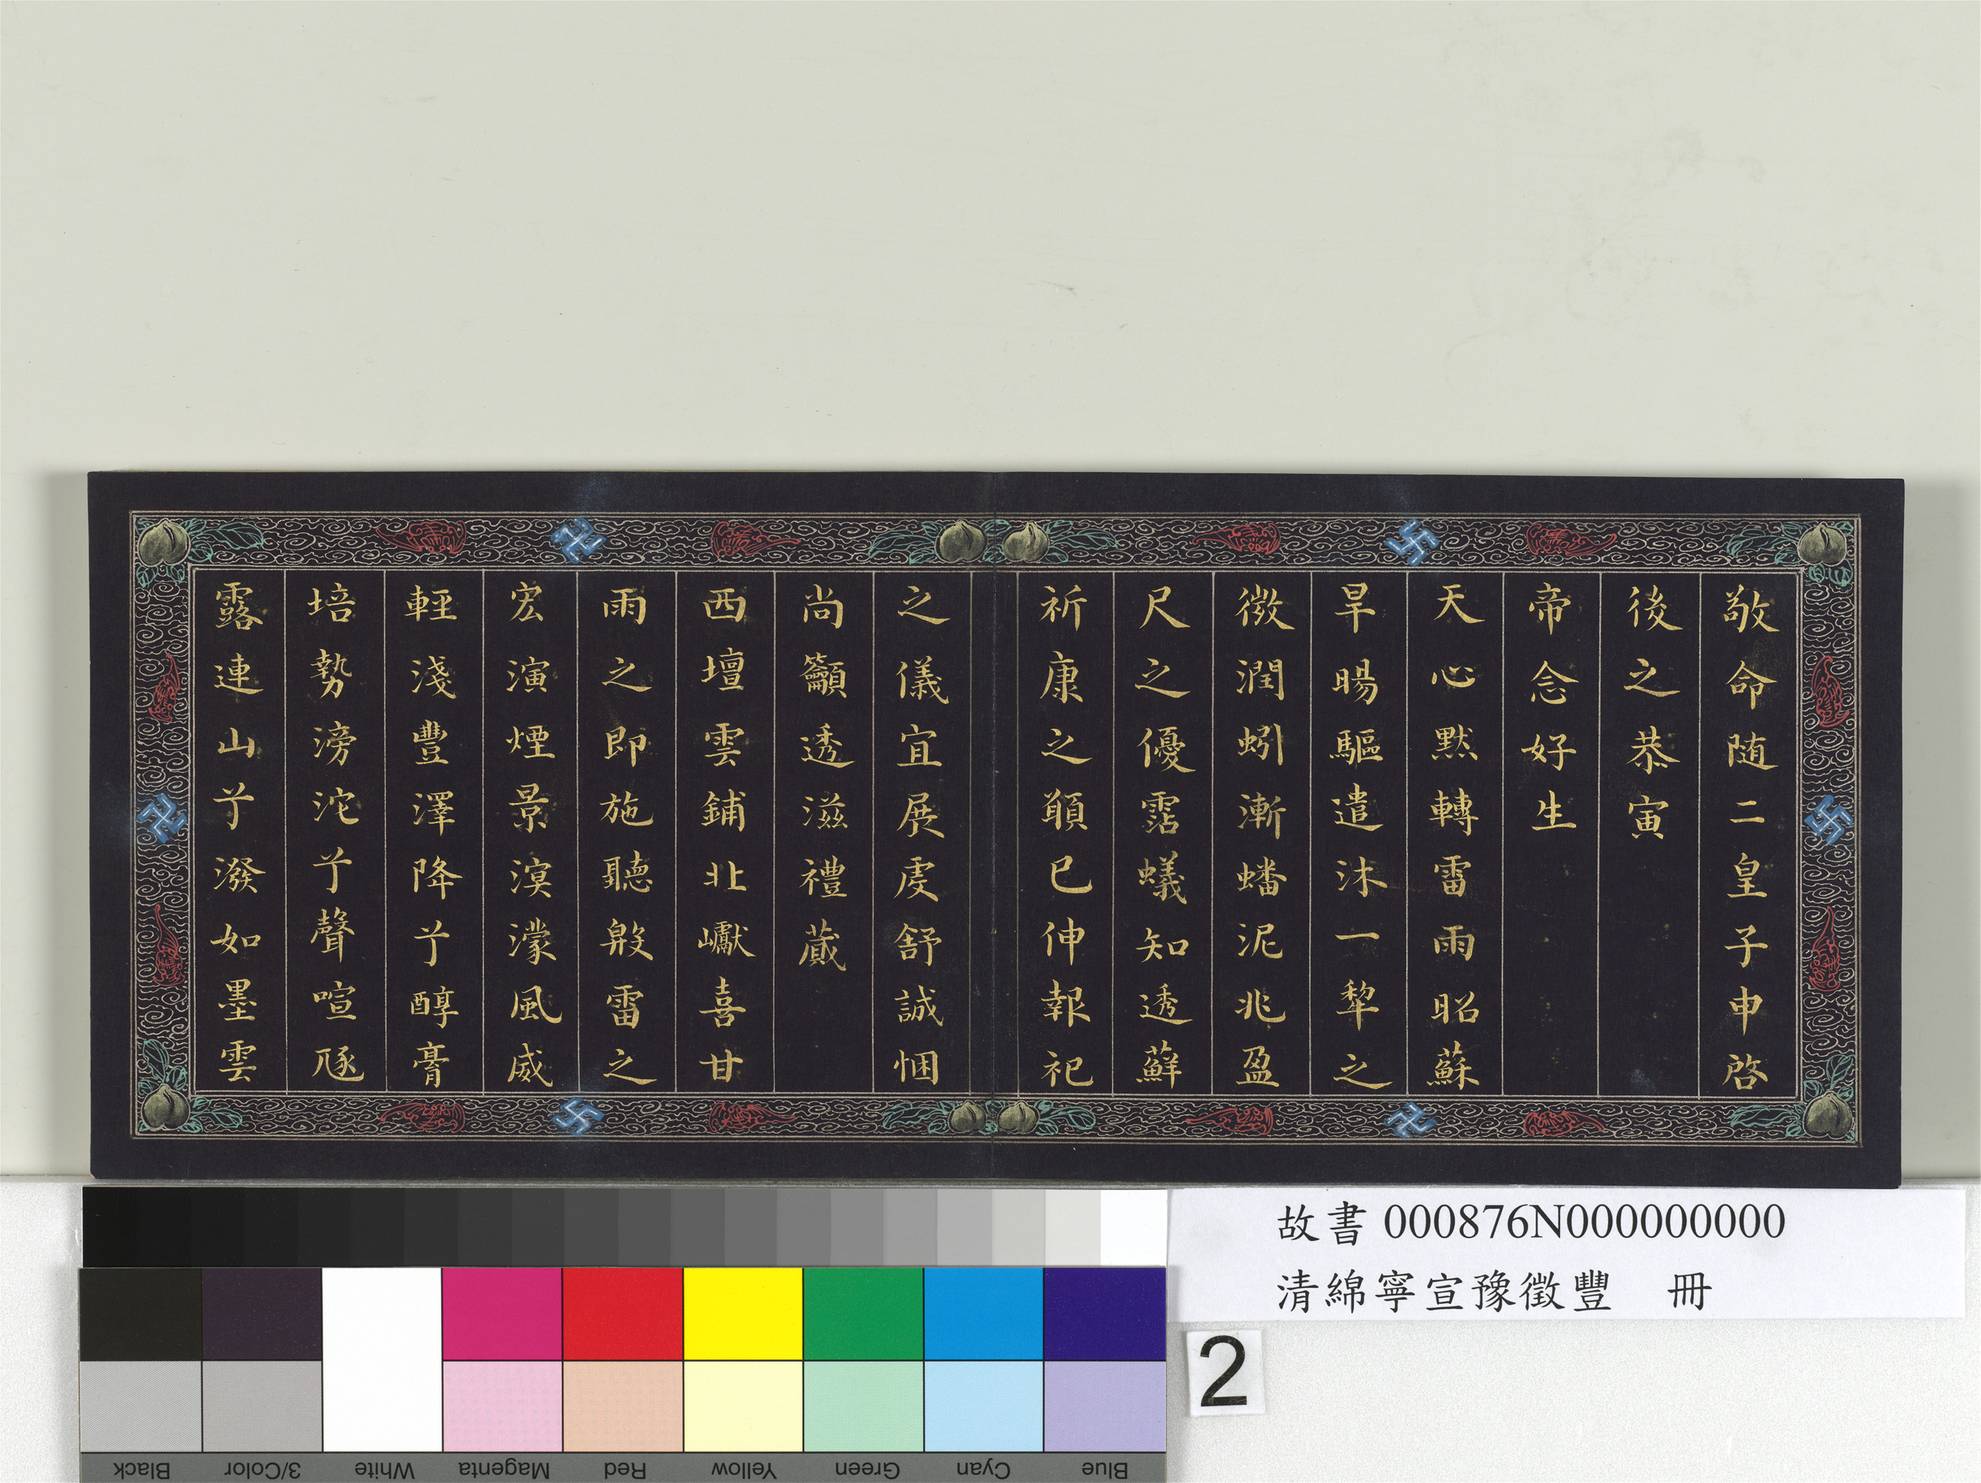 敬命随二皇子申啓
後之恭寅
帝念好生
天心默轉雷雨昭蘇
旱暘驅遣沐一犂之
微潤蚓漸蟠泥兆盈
尺之優霑蟻知透蘚
祈康之願已伸報祀
之儀宜展虔舒誠悃
尚籲透滋禮蕆
西壇雲鋪北巘喜甘
雨之即施聽殷雷之
宏演煙景溟濛風威
輕淺豐澤降兮醇膏
培勢滂沱兮聲喧豗
露連山兮潑如墨雲
故書 000876N000000000
清綿寧宣豫徵豐 冊
2
Black 3/Color White Magenta Red Yellow Green Cyan Blue